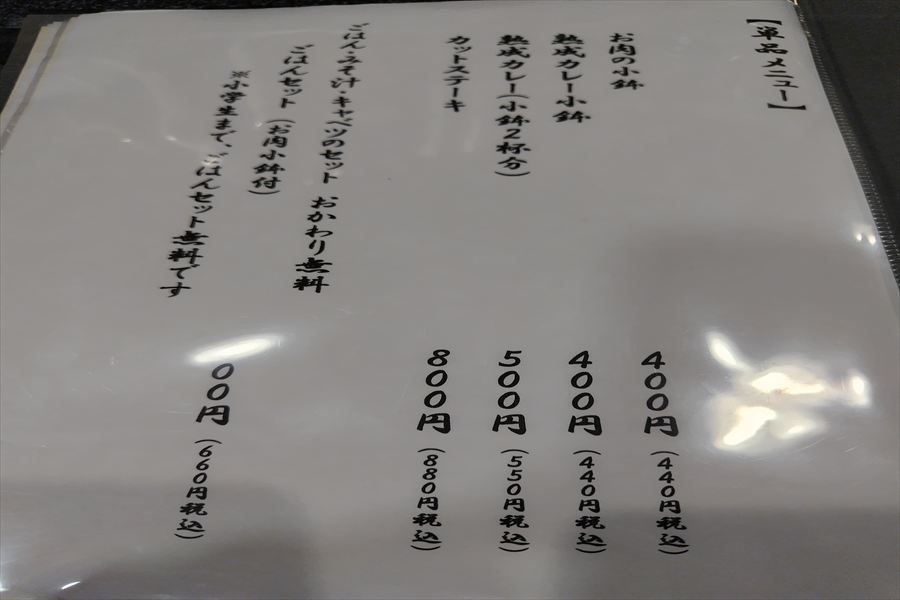 【単品メニュー】
お肉の小鉢 400円(440円税込)
熟成カレー小鉢 400円(440円税込)
熟成カレー(小鉢2杯分) 500円(550円税込)
カットステーキ 800円(880円税込)
ごはん・みそ汁・キャベツのセット おかわり無料
ごはんセット(お肉小鉢付) 00円(660円税込)
※小学生まで、ごはんセット無料です